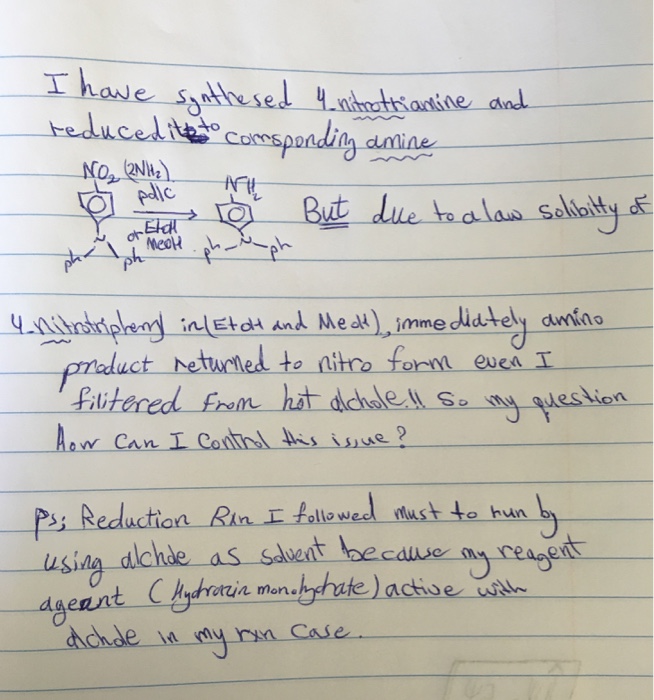 I have synthesed 4-nitrottiamine and
reduced it to corrsponding amine
NO2 (2NH2) NH2
pd/C
or EtoH
MeoH
ph N ph ph N ph
But due to a law solibitty of
4-nitrotriphenyl in (EtoH and MeoH), immediately amino
product returned to nitro form even I
filitered from hot alchole!! So my question
How Can I Control this issue?
Ps; Reduction Rxn I followed must to run by
using alchole as solvent because my reagent
ageant (Hydrozin monohydrate) active with
alchole in my rxn case.